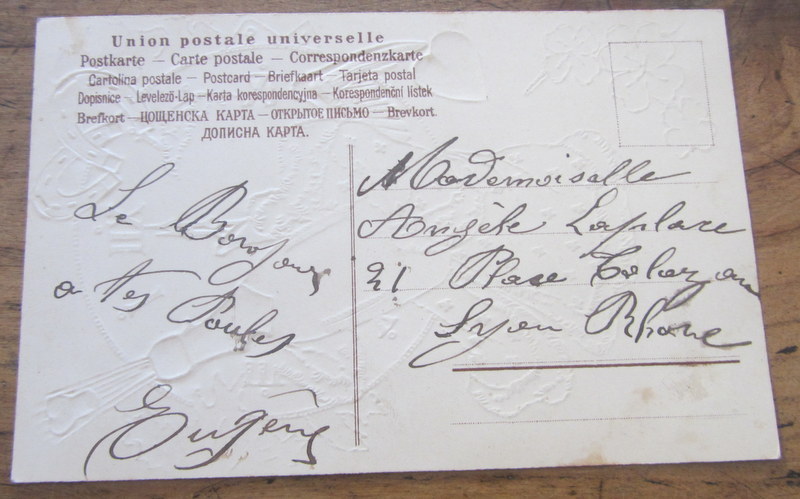 Union postale universelle
Postkarte — Carte postale — Correspondenzkarte
Cartolina postale — Postcard — Briefkaart — Tarjeta postal
Dopisnice — Levelező-Lap — Karta korespondencyjna — Korespondenční lístek
Brefkort — ЦОЩЕНСКА КАРТА — ОТКРЫТОЕ ПИСЬМО — Brevkort
ДОПИСНА КАРТА.
Le Bonjour
a tes Poules
Eugène
Mademoiselle
Angèle Laplace
21 Place
Lyon Rhone